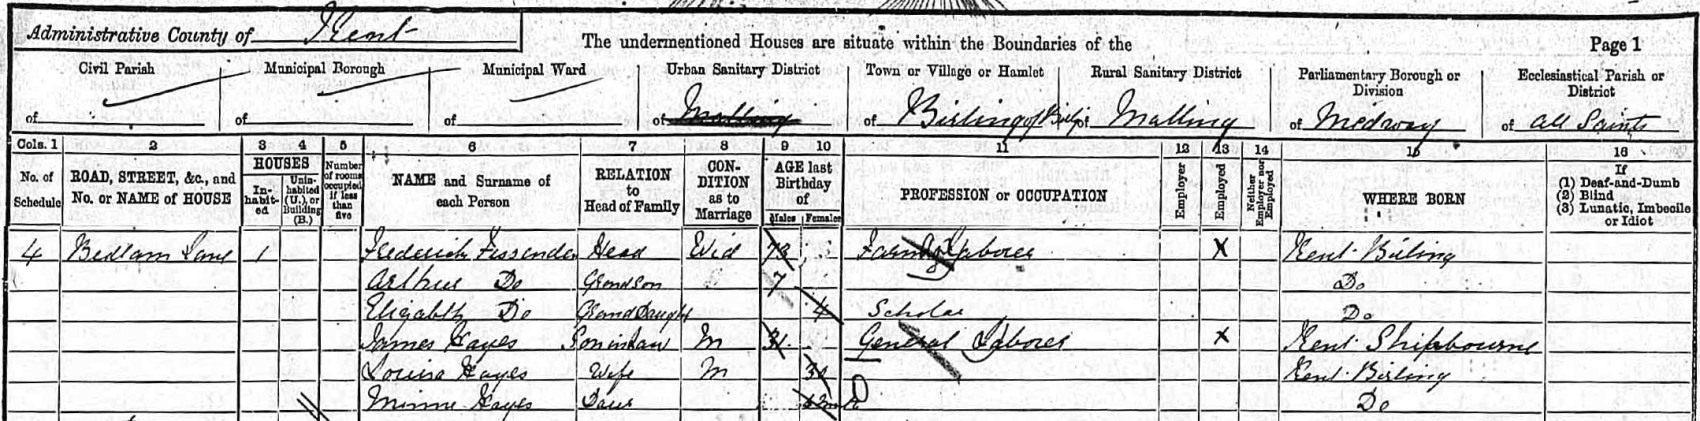 Administrative County of Kent
The undermentioned Houses are situate within the Boundaries of the
Page 1
Civil Parish
of
Municipal Borough
of
Municipal Ward
of
Urban Sanitary District
of Malling
Town or Village or Hamlet
of Birling
Rural Sanitary District
of Malling
Parliamentary Borough or Division
of Medway
Ecclesiastical Parish or District
of All Saints
Cols. 1 2 3 4 5 6 7 8 9 10 11 12 13 14 15 16
No. of Schedule
ROAD, STREET, &c., and No. or NAME of HOUSE
HOUSES
In-habit-ed
Unin-habited (U.), or Building (B.)
Number of rooms occupied if less than five
NAME and Surname of each Person
RELATION to Head of Family
CON-DITION as to Marriage
AGE last Birthday of
Males Females
PROFESSION or OCCUPATION
Employer
Employed
Neither Employer nor Employed
WHERE BORN
If
(1) Deaf-and-Dumb
(2) Blind
(3) Lunatic, Imbecile or Idiot
4 Bedlam Lane 1 Frederick Fissenden Head Wid 73 Farm Laborer X Kent Birling
Arthur Do Grandson 7 Do
Elizabth Do GrandDaught 4 Scholar Do
James Hayes Son in Law M 31 General Laborer X Kent Shipbourne
Louisa Hayes Wife M Kent Birling
Minnie Hayes Daur Do